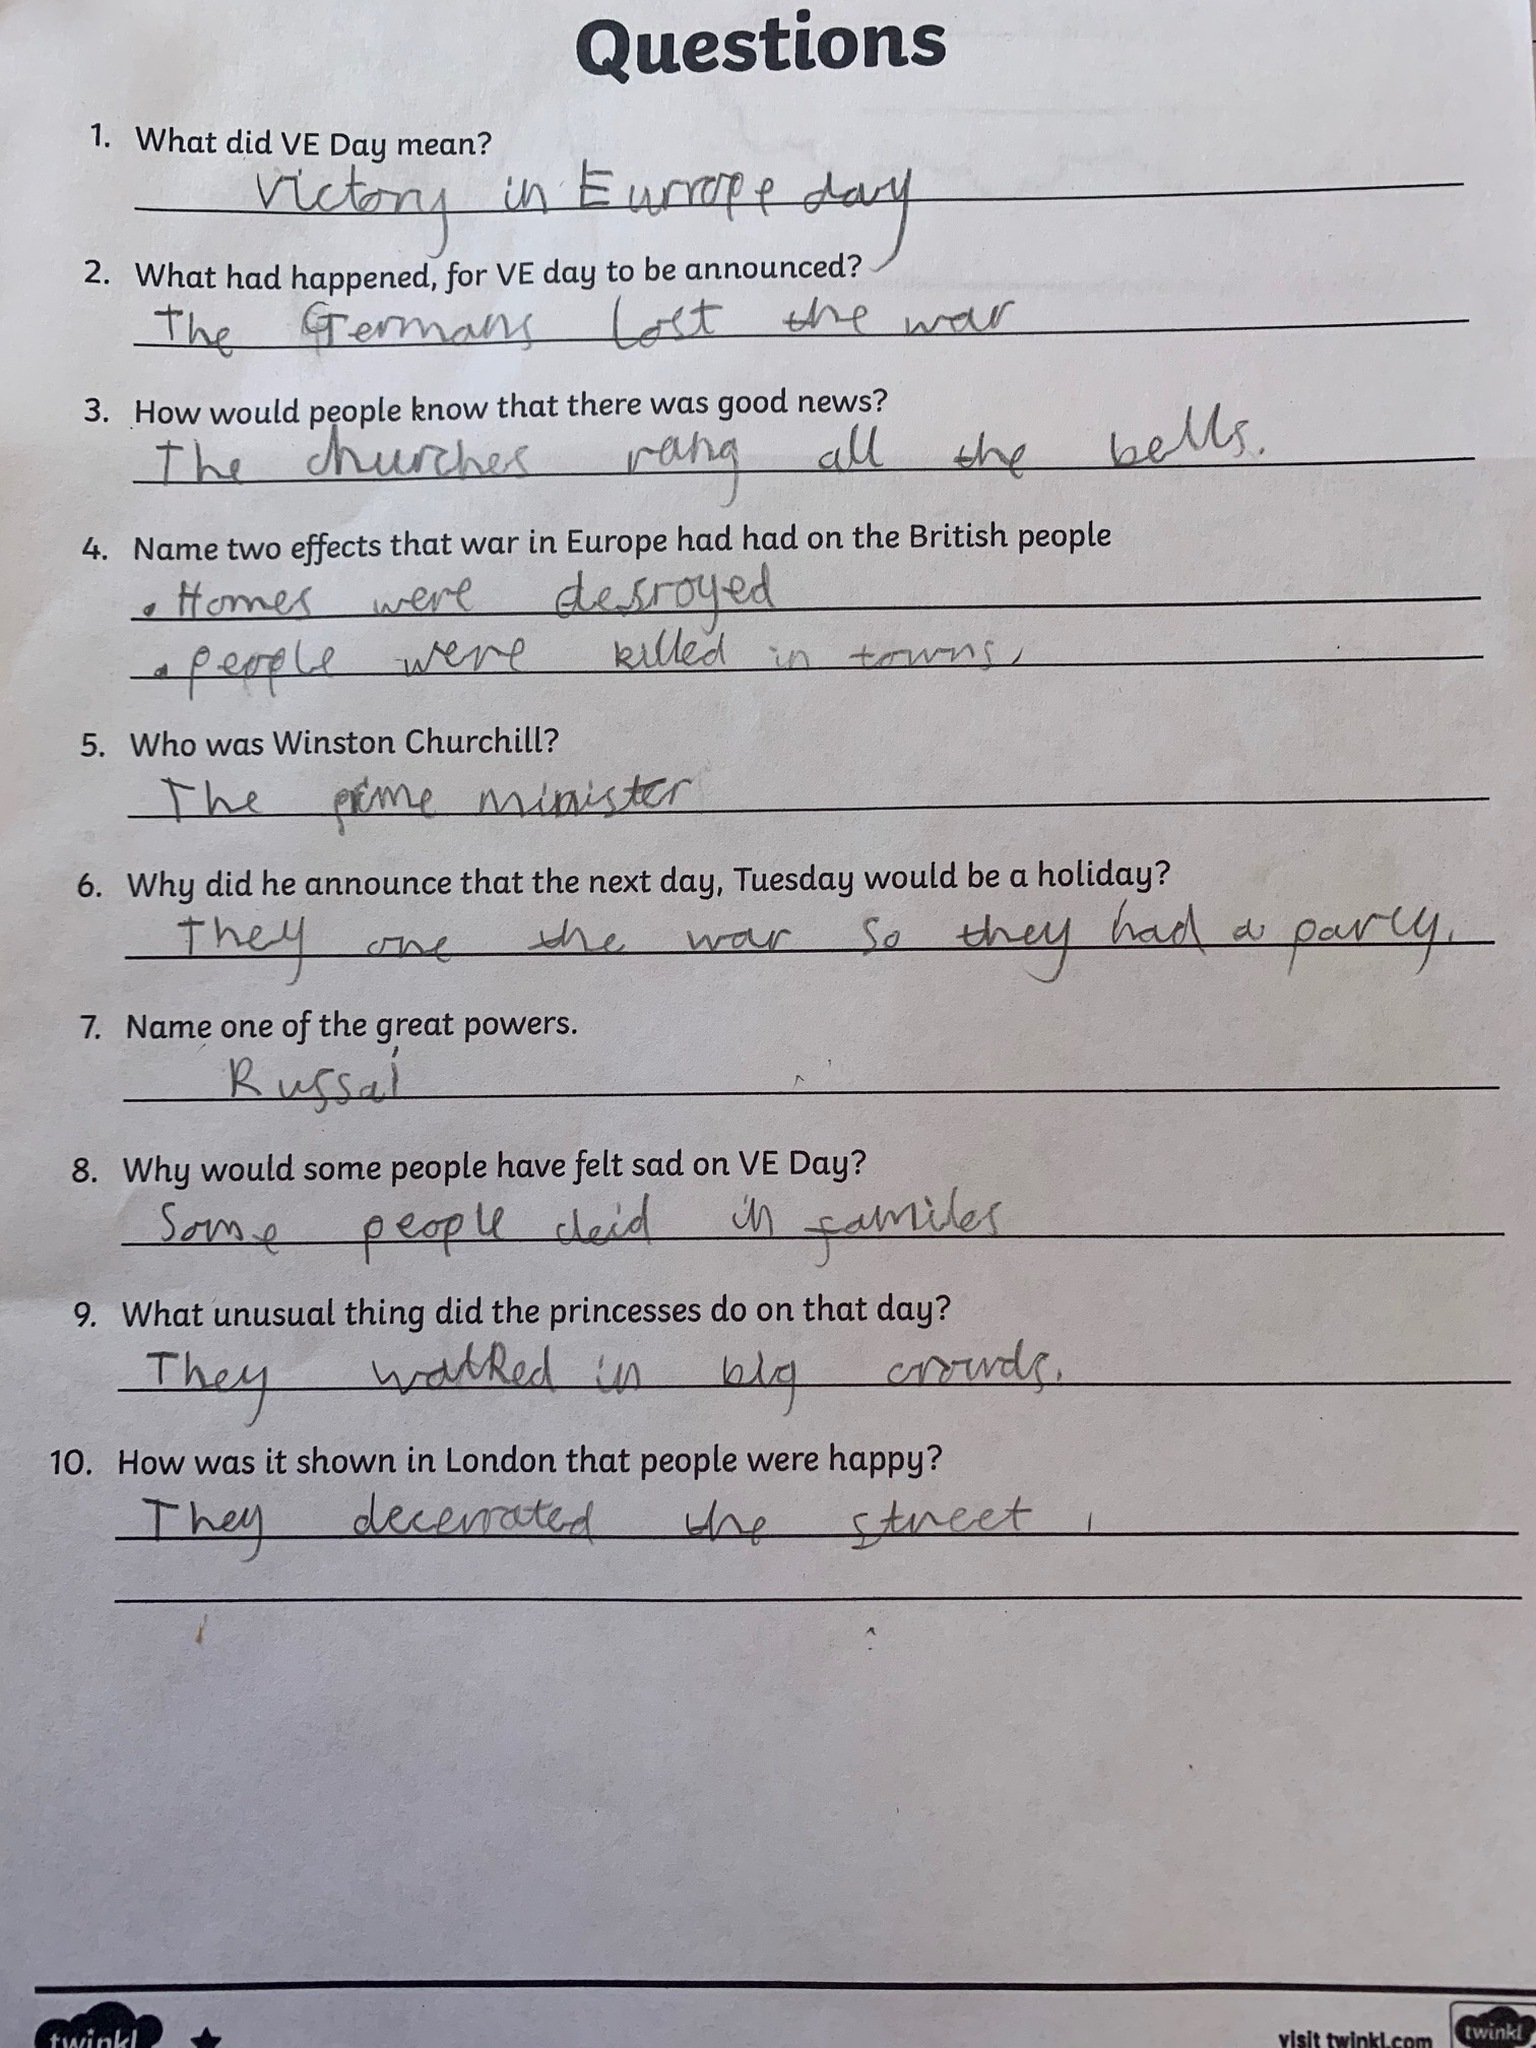 Questions
1. What did VE Day mean?
Victory in Eurrope day
2. What had happened, for VE day to be announced?
The Germans lost the war
3. How would people know that there was good news?
The churches rang all the bells.
4. Name two effects that war in Europe had had on the British people
• Homes were desroyed
• people were killed in towns,
5. Who was Winston Churchill?
The prime minister
6. Why did he announce that the next day, Tuesday would be a holiday?
They one the war so they had a party.
7. Name one of the great powers.
Russai
8. Why would some people have felt sad on VE Day?
Some people deid in familes
9. What unusual thing did the princesses do on that day?
They walked in big crowds.
10. How was it shown in London that people were happy?
They decerrated the street ,
twinkl
visit twinkl.com
twinkl